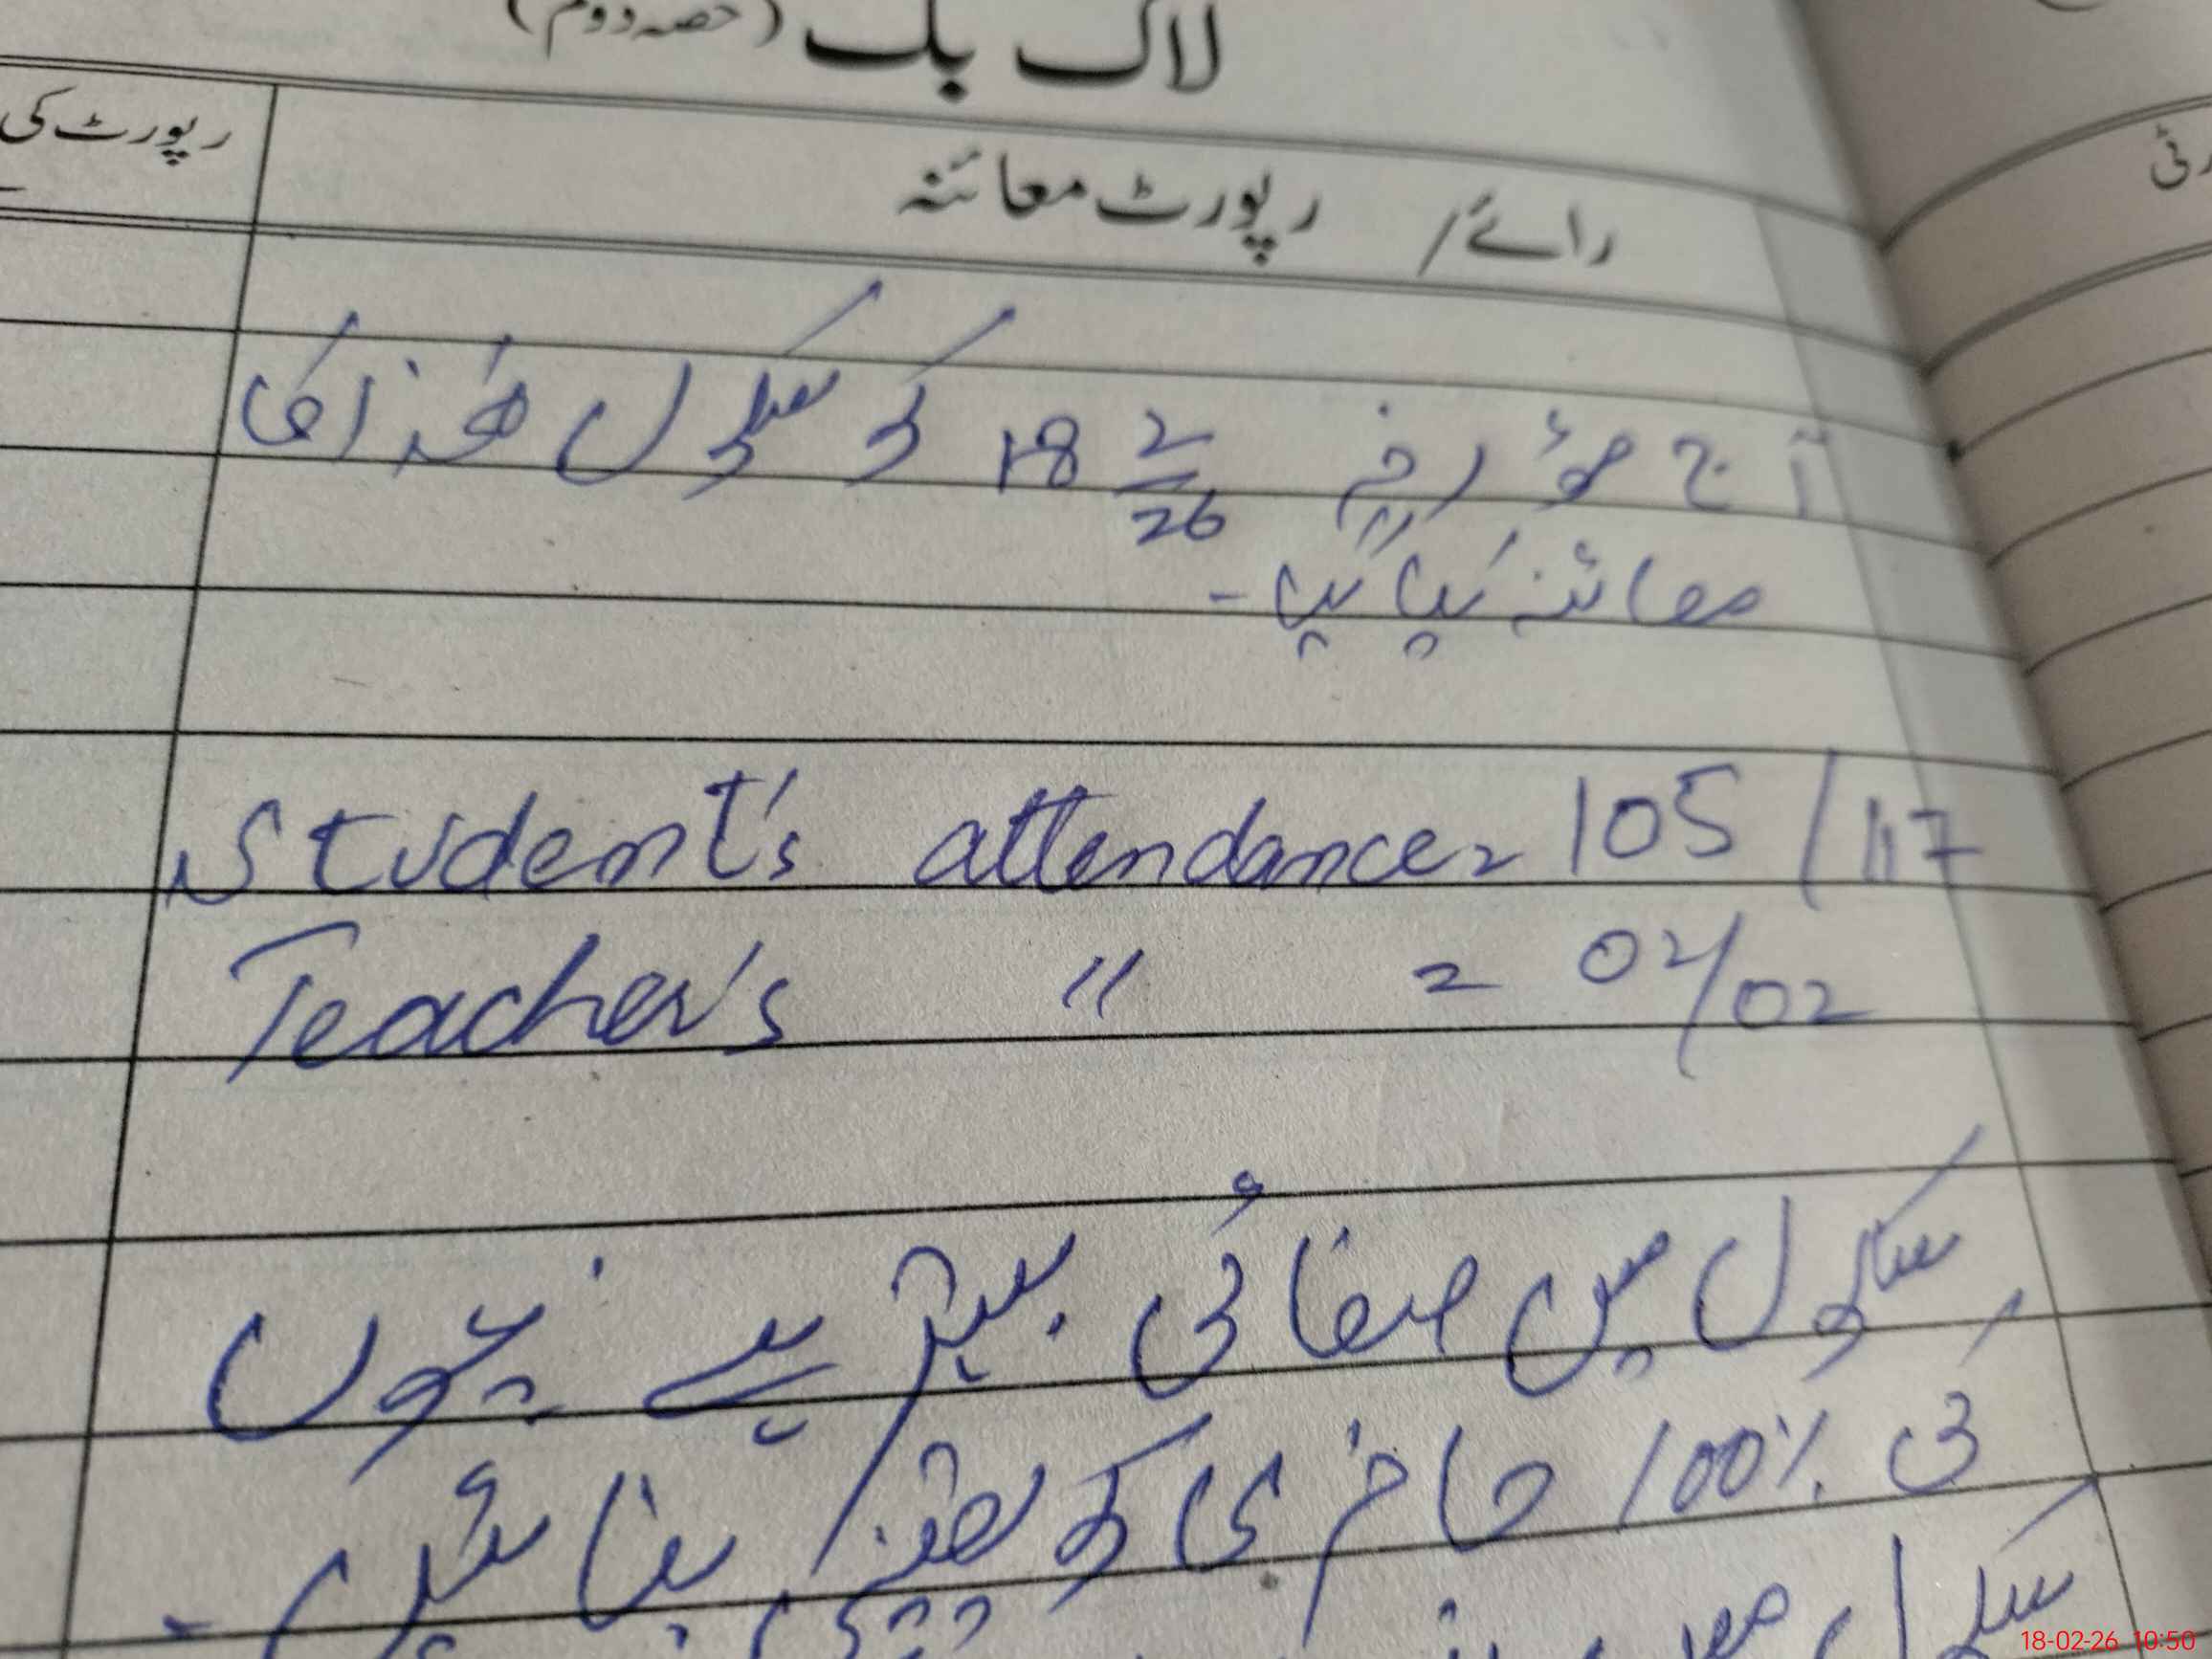 لاگ بک (حصہ دوم)
رپورٹ کی
رائے / رپورٹ معائنہ
آج مؤرخہ 18 2/26 کو سکول ھٰذا کا
معائنہ کیا گیا -
Student's attendance = 105/117
Teacher's " = 02/02
سکول میں صفائی بہتر ہے بچوں
کی 100% حاضری کو یقینی بنائیں -
سکول میں
18-02-26 10:50